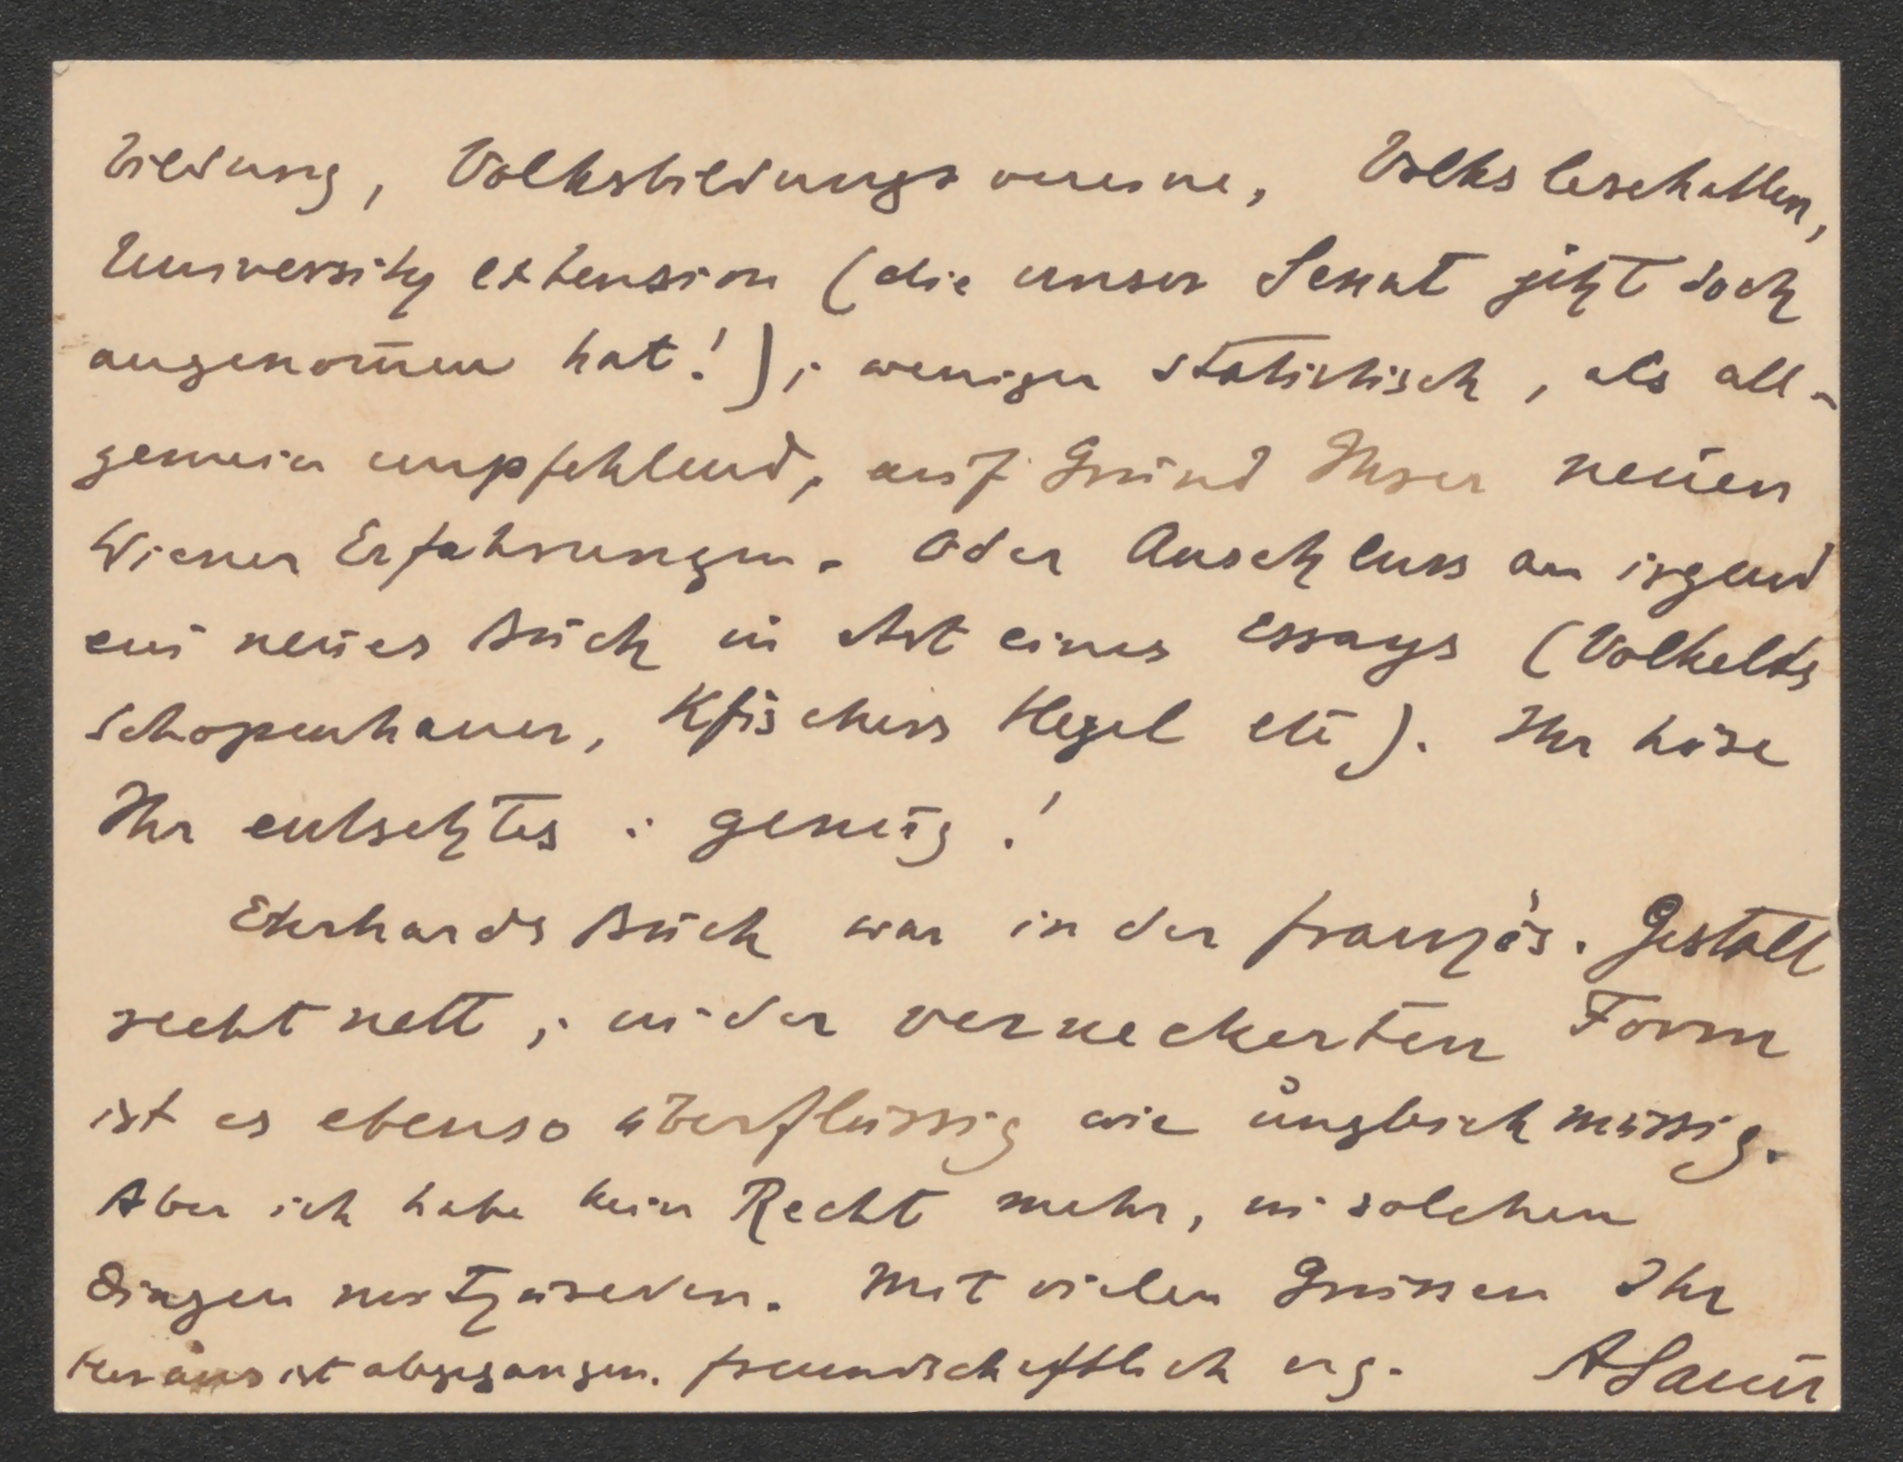 bildung, Volksbildungsvereine, Volkslesehallen,
University extension (die unser Senat jetzt doch
angenom̅en hat!); weniger statistisch, als all-
gemein empfehlend, auf Grund Ihrer neuen
Wiener Erfahrungen. Oder Anschluss an irgend
ein neues Buch in Art eines Essays (Volkelts
Schopenhauer, KFischers Hegel etc). Ihr höre
Ihr entsetztes: genug!
Ehrhards Buch war in der französ. Gestalt
recht nett; in der verneckerten Form
ist es ebenso überflüssig wie ungleichmässig.
Aber ich habe kein Recht mehr, in solchen
Dingen mitzureden. Mit vielen Grüssen Ihr
ist abgegangen. freundschaftlich erg. ASauer